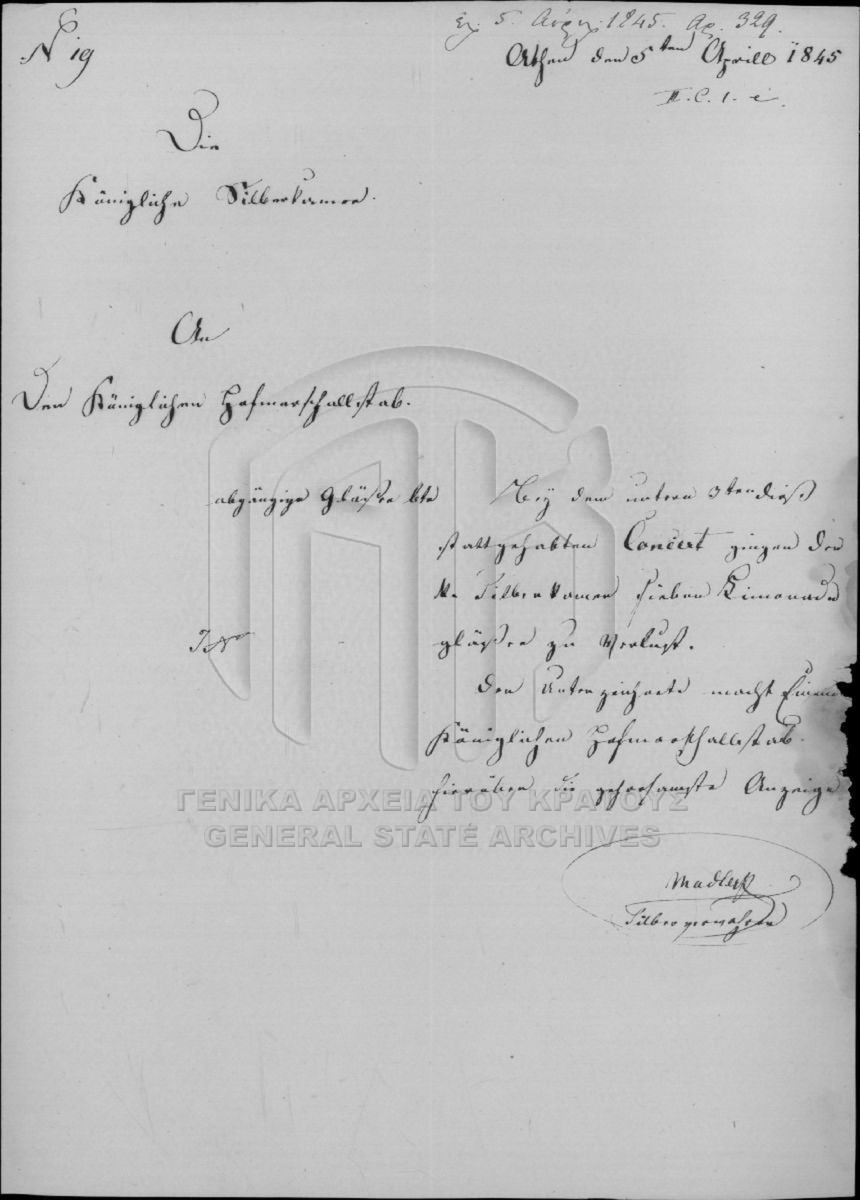 N 19
5. 1845. Αρ. 329.
Athen den 5ten Aprill 1845
II. C. 1. e.
Die
Königliche Silberkamer.
An
Den Königlichen Hofmarschallstab.
abgängige Gläßer btr
Bey dem untern 3ten dieß
stattgehabten Concert gingen der
k. Silberkamer sieben Limonade
gläßer zu Verlust.
Der Unterzeichnete macht Einem
Königlichen Hofmarschallstab
hierüber die gehorsamste Anzeige
ΓΕΝΙΚΑ ΑΡΧΕΙΑ ΤΟΥ ΚΡΑΤΟΥΣ
GENERAL STATE ARCHIVES
Silberverwahrer